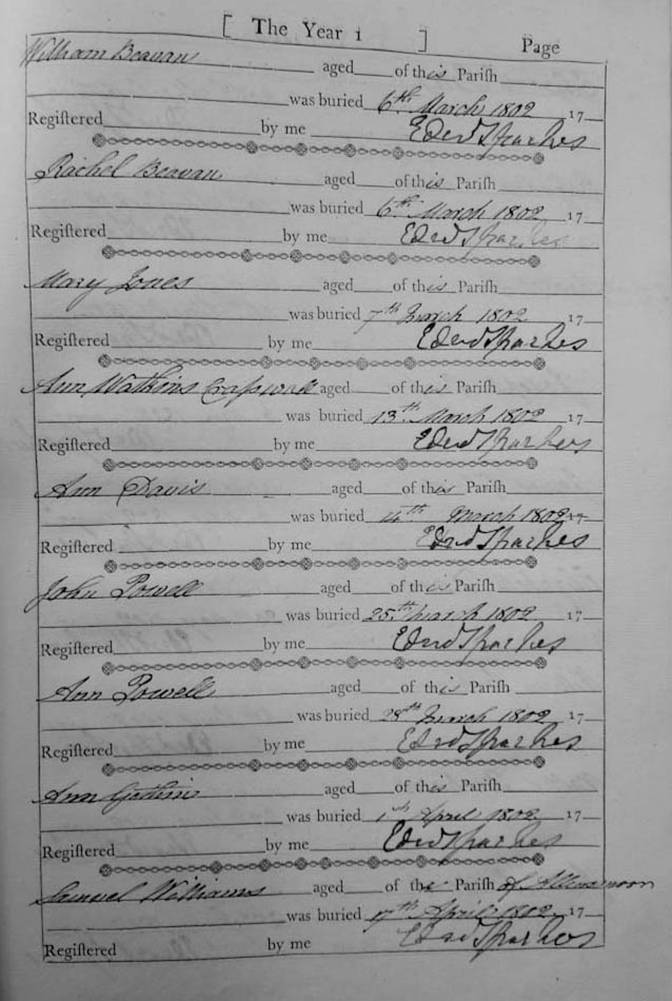 [ The Year 1 ] Page
William Beavan aged of this Pariſh
was buried 6th March 1802 17
Regiſtered by me Edwd Sparkes
Rachel Beavan aged of this Pariſh
was buried 6th March 1802 17
Regiſtered by me Edwd Sparkes
Mary Jones aged of this Pariſh
was buried 7th March 1802 17
Regiſtered by me Edwd Sparkes
Ann Watkins Craſswall aged of this Pariſh
was buried 13th March 1802 17
Regiſtered by me Edwd Sparkes
Ann Davis aged of this Pariſh
was buried March 1802 17
Regiſtered by me Edwd Sparkes
John Powell aged of this Pariſh
was buried 25th March 1802 17
Regiſtered by me Edwd Sparkes
Ann Powell aged of this Pariſh
was buried 28th March 1802 17
Regiſtered by me Edwd Sparkes
Ann aged of this Pariſh
was buried April 1802 17
Regiſtered by me Edwd Sparkes
Samuel Williams aged of the Pariſh of
was buried 17th April 1802 17
Regiſtered by me Edwd Sparkes